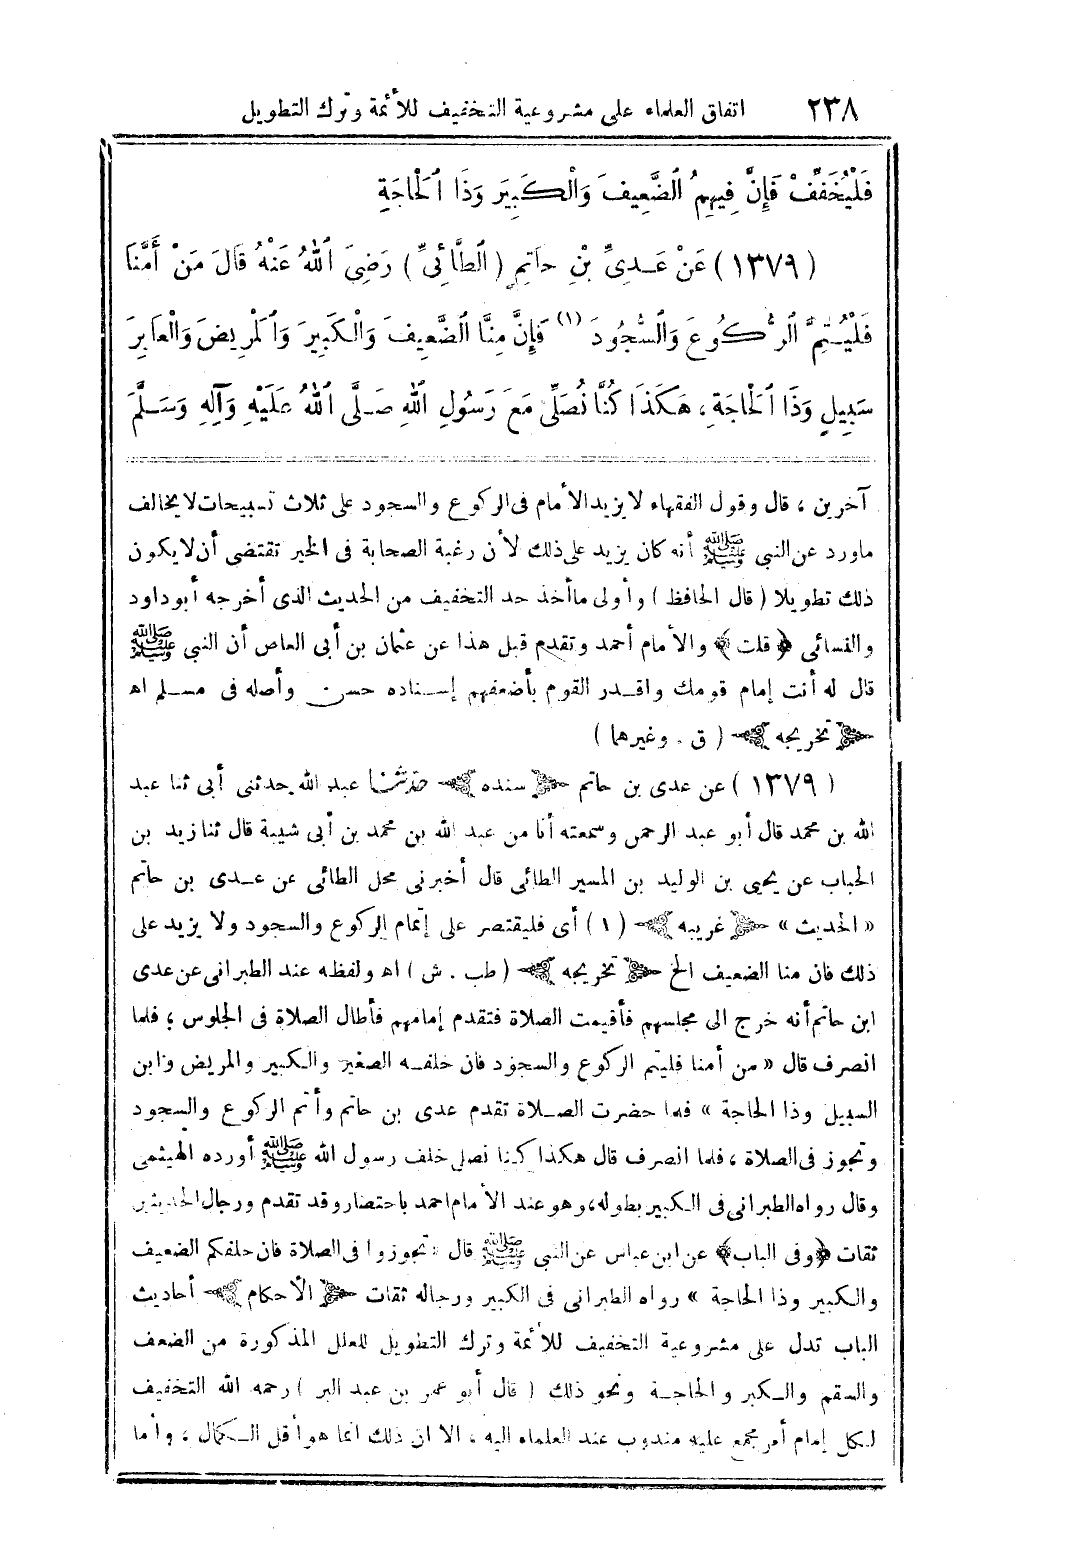 ٢٣٨ اتفاق العلماء على مشروعية التخفيف للأئمة وترك التطويل
فَلْيُخَفِّفْ فَإِنَّ فِيهِمُ الضَّعِيفَ وَالْكَبِيرَ وَذَا الْحَاجَةِ
(١٣٧٩) عَنْ عَدِىِّ بْنِ حَاتِمٍ (الطَّائِىِّ) رَضِىَ اللهُ عَنْهُ قَالَ مَنْ أَمَّنَا
فَلْيُتِمَّ الرُّكُوعَ وَالسُّجُودَ (١) فَإِنَّ مِنَّا الضَّعِيفَ وَالْكَبِيرَ وَالْمَرِيضَ وَالْعَابِرَ
سَبِيلٍ وَذَا الْحَاجَةِ، هَكَذَا كُنَّا نُصَلِّى مَعَ رَسُولِ اللهِ صَلَّى اللهُ عَلَيْهِ وَآلِهِ وَسَلَّمَ
آخرين ، قال وقول الفقهاء لا يزيد الأمام فى الركوع والسجود على ثلاث تسبيحات لا يخالف
ماورد عن النبى ﷺ أنه كان يزيد على ذلك لأن رغبة الصحابة فى الخير تقتضى أن لا يكون
ذلك تطويلا (قال الحافظ) وأولى ما أخذ حد التخفيف من الحديث الذى أخرجه أبو داود
والنسائى ﴿قلت﴾ والأمام أحمد وتقدم قبل هذا عن عثمان بن أبى العاص أن النبى ﷺ
قال له أنت إمام قومك واقدر القوم بأضعفهم إسناده حسن وأصله فى مسلم اه
﴿تخريجه﴾ (ق . وغيرهما)
(١٣٧٩) عن عدى بن حاتم ﴿سنده﴾ حدثنا عبد الله حدثنى أبى ثنا عبد
الله بن محمد قال أبو عبد الرحمن وسمعته أنا من عبد الله بن محمد بن أبى شيبة قال ثنا زيد بن
الحباب عن يحيى بن الوليد بن المسير الطائى قال أخبرنى محل الطائى عن عدى بن حاتم
« الحديث » ﴿غريبه﴾ (١) أى فليقتصر على إتمام الركوع والسجود ولا يزيد على
ذلك فان منا الضعيف الخ ﴿تخريجه﴾ (طب . ش) اه ولفظه عند الطبرانى عن عدى
ابن حاتم أنه خرج الى مجلسهم فأقيمت الصلاة فتقدم إمامهم فأطال الصلاة فى الجلوس ، فلما
انصرف قال « من أمنا فليتم الركوع والسجود فان خلفه الصغير والكبير والمريض وابن
السبيل وذا الحاجة » فلما حضرت الصلاة تقدم عدى بن حاتم وأتم الركوع والسجود
وتجوز فى الصلاة ، فلما انصرف قال هكذا كنا نصلى خلف رسول الله ﷺ أورده الهيثمى
وقال رواه الطبرانى فى الكبير بطوله، وهو عند الأمام احمد باختصار وقد تقدم ورجال الحديثين
ثقات ﴿وفى الباب﴾ عن ابن عباس عن النبى ﷺ قال « تجوزوا فى الصلاة فان خلفكم الضعيف
والكبير وذا الحاجة » رواه الطبرانى فى الكبير ورجاله ثقات ﴿الأحكام﴾ أحاديث
الباب تدل على مشروعية التخفيف للأئمة وترك التطويل للعلل المذكورة من الضعف
والسقم والكبر والحاجة ونحو ذلك (قال أبو عمر بن عبد البر) رحمه الله التخفيف
لكل إمام أمر مجمع عليه مندوب عند العلماء اليه ، الا ان ذلك انما هو أقل الكمال ، وأما